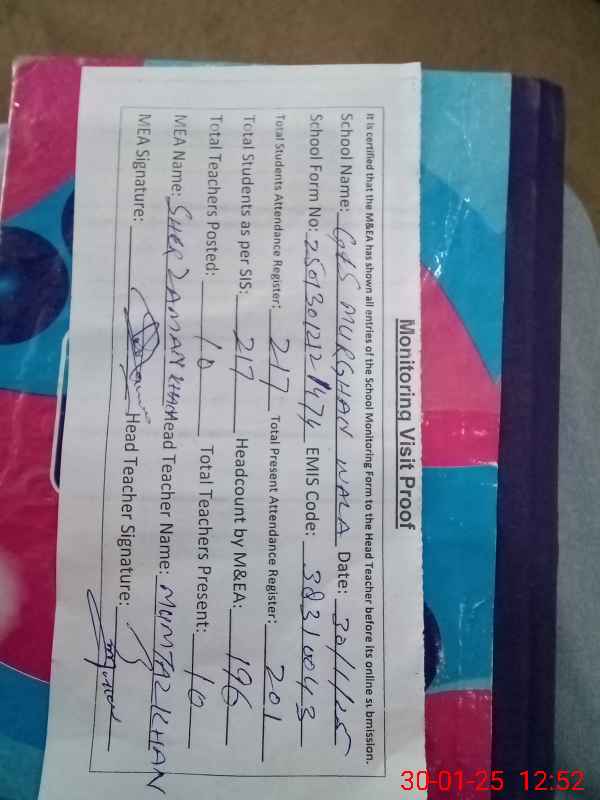 Monitoring Visit Proof
It is certified that the M&EA has shown all entries of the School Monitoring Form to the Head Teacher before its online submission.
School Name: GHS MURGHAN WALA Date: 30/1/25
School Form No: EMIS Code: 38310043
Total Students Attendance Register: 217 Total Present Attendance Register: 201
Total Students as per SIS: 217 Headcount by M&EA: 196
Total Teachers Posted: 10 Total Teachers Present: 10
MEA Name: SHER ZAMAN KHAN Head Teacher Name: MUMTAZ KHAN
MEA Signature: Head Teacher Signature:
30-01-25 12:52